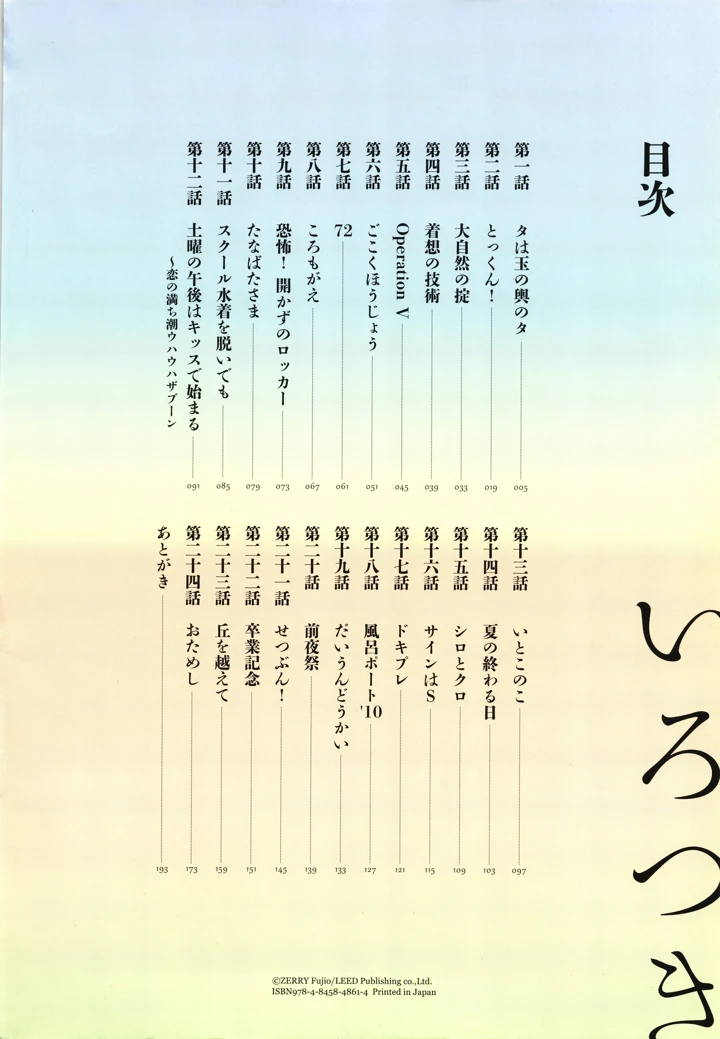 目次
いろつき
第一話 タは玉の輿のタ 005
第二話 とっくん！ 019
第三話 大自然の掟 033
第四話 着想の技術 039
第五話 Operation V 045
第六話 ごこくほうじょう 051
第七話 72 061
第八話 ころもがえ 067
第九話 恐怖！ 開かずのロッカー 073
第十話 たなばたさま 079
第十一話 スクール水着を脱いでも 085
第十二話 土曜の午後はキッスで始まる 091
～恋の満ち潮ウハウハザブーン
第十三話 いとこのこ 097
第十四話 夏の終わる日 103
第十五話 シロとクロ 109
第十六話 サインはS 115
第十七話 ドキプレ 121
第十八話 風呂ポート'10 127
第十九話 だいうんどうかい 133
第二十話 前夜祭 139
第二十一話 せつぶん！ 145
第二十二話 卒業記念 151
第二十三話 丘を越えて 159
第二十四話 おためし 173
あとがき 193
©ZERRY Fujio/LEED Publishing co.,Ltd.
ISBN978-4-8458-4861-4 Printed in Japan